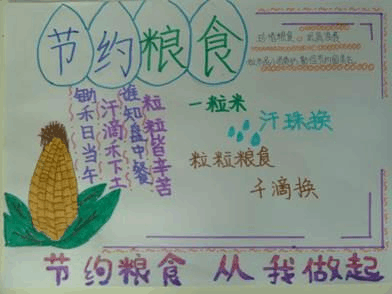 节约粮食
珍惜粮食
锄禾日当午
汗滴禾下土
谁知盘中餐
粒粒皆辛苦
一粒米
汗珠换
粒粒粮食
千滴换
节约粮食 从我做起